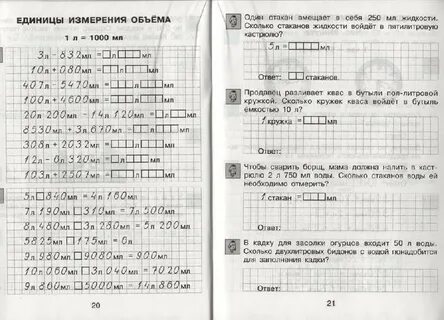 ЕДИНИЦЫ ИЗМЕРЕНИЯ ОБЪЁМА
1 л = 1000 мл
3л - 832мл = □л□□□мл
10л + 080мл = □□л□□□мл
407л - 5470мл = □□□л□□□мл
100л + 4600мл = □□□л□□□мл
20л 200мл - 14л 120мл = □л□□мл
8530мл + 3л 670мл = □□л□□□мл
308л + 2032мл = □□□л□□□мл
12л - 0л 320мл = □□л□□□мл
103л + 2507мл = □□□л□□□мл
5л □ 840мл = 4л 160мл
7л 190мл □ 310мл = 7л 500мл
8л 480мл □ 3л 280мл = 5л 200мл
5825мл □ 175мл = 6л
9л 980мл □ 9080мл = 900мл
10л 060мл □ 3л 040мл = 7020мл
9л 860мл □ 5000мл = 14л 860мл
20
Один стакан вмещает в себя 250 мл жидкости.
Сколько стаканов жидкости войдёт в пятилитровую
кастрюлю?
5л = □□□□мл
Ответ: □□ стаканов.
Продавец разливает квас в бутыли пол-литровой
кружкой. Сколько кружек кваса войдёт в бутыль
ёмкостью 10 л?
1 кружка = □□□мл
Ответ:
Чтобы сварить борщ, мама должна налить в каст-
рюлю 2 л 750 мл воды. Сколько стаканов воды ей
необходимо отмерить?
1 стакан = □□□мл
Ответ:
В кадку для засолки огурцов входит 50 л воды.
Сколько двухлитровых бидонов с водой понадобится
для заполнения кадки?
Ответ:
21